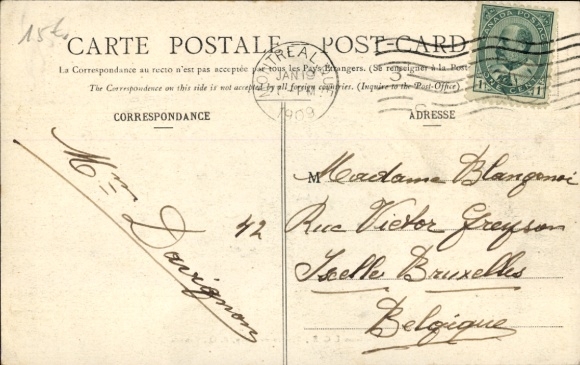 15k
CARTE POSTALE
POST-CARD
La Correspondance au recto n'est pas acceptée par tous les Pays Étrangers. (Se renseigner à la Post
The Correspondence on this side is not accepted by all foreign countries. (Inquire to the Post-Office)
MONTREAL QUE
JAN 19
1909
CANADA POSTAGE
1 ONE CENT 1
CORRESPONDANCE
ADRESSE
Mme Davignon
M Madame Blangenoi
42 Rue Victor Greyson
Ixelle Bruxelles
Belgique